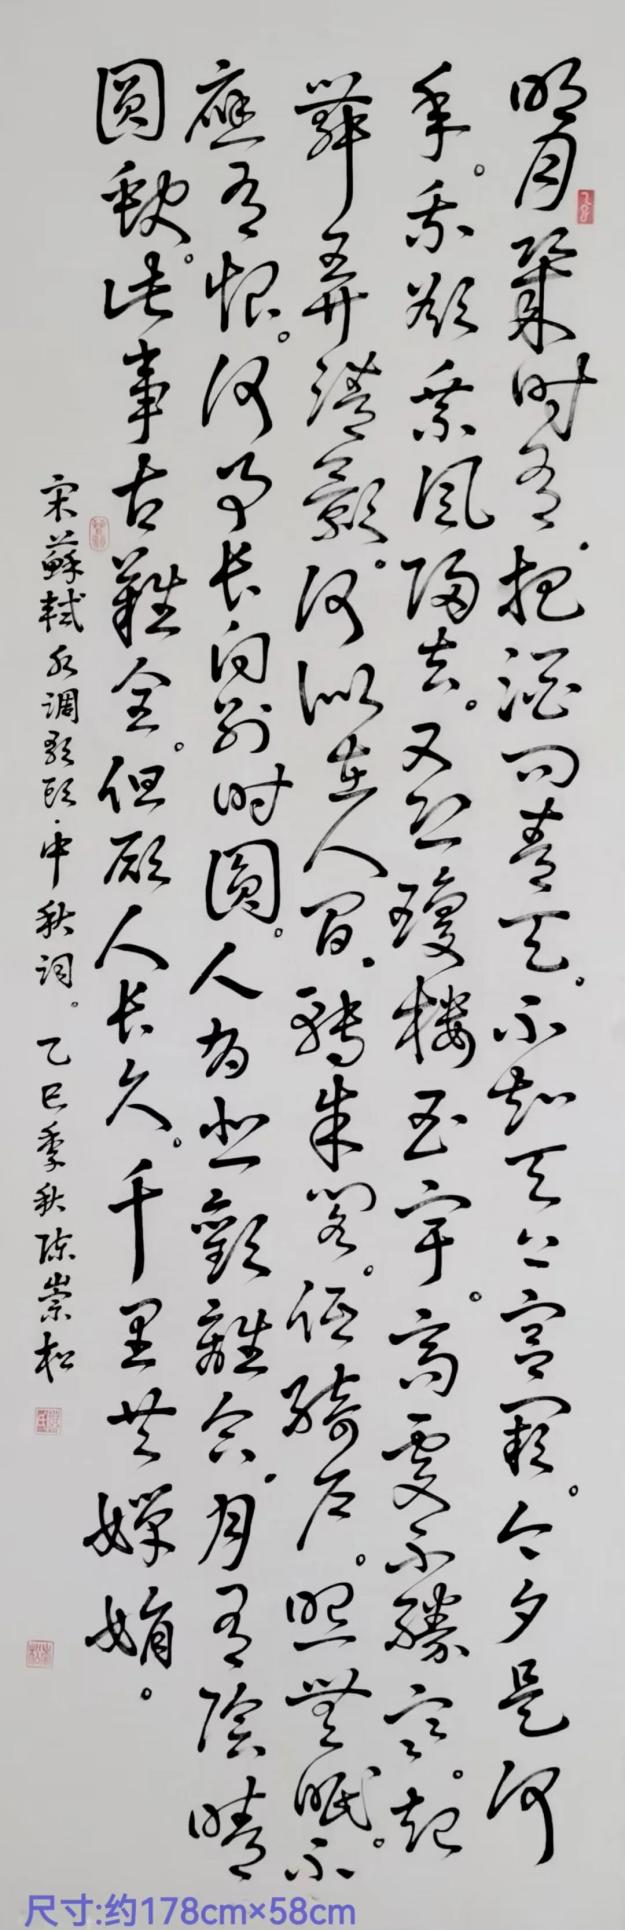 明月幾时有.把酒问青天。不知天上宫闕。今夕是何
年。我欲乘風歸去。又恐瓊楼玉宇。高處不勝寒。起
舞弄清影。何似在人间.轉朱阁。低绮户。照無眠。不
應有恨。何事长向别时圓。人有悲歡離合.月有陰晴
圓缺。此事古難全。但願人长久。千里共嬋娟。
宋蘇軾水调歌頭·中秋词。乙巳季秋陈崇松
尺寸:约178cm×58cm